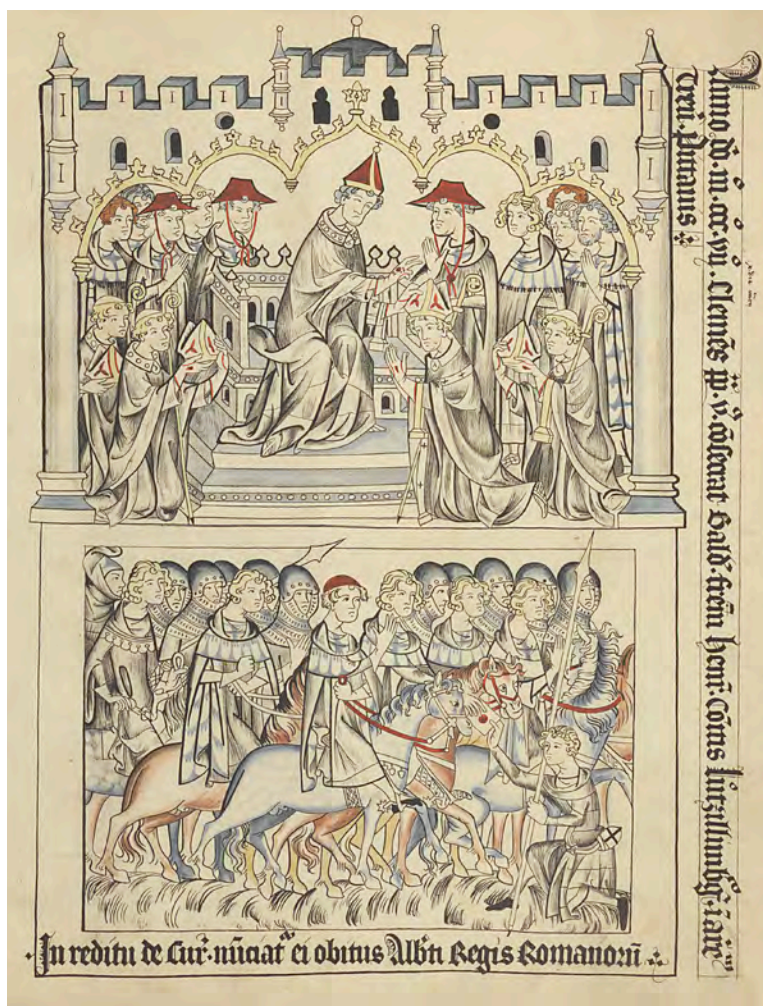 Anno dō. m. ccc. vii. Clemēs pp. v. cōsecrat Bald. frēm henr. Cōitis lutzillimbg. i are
Treū. Pittauis
In reditu de Cur̄. nūciatᵘʳ ei obitus Alb̄ti Regis Romanorū